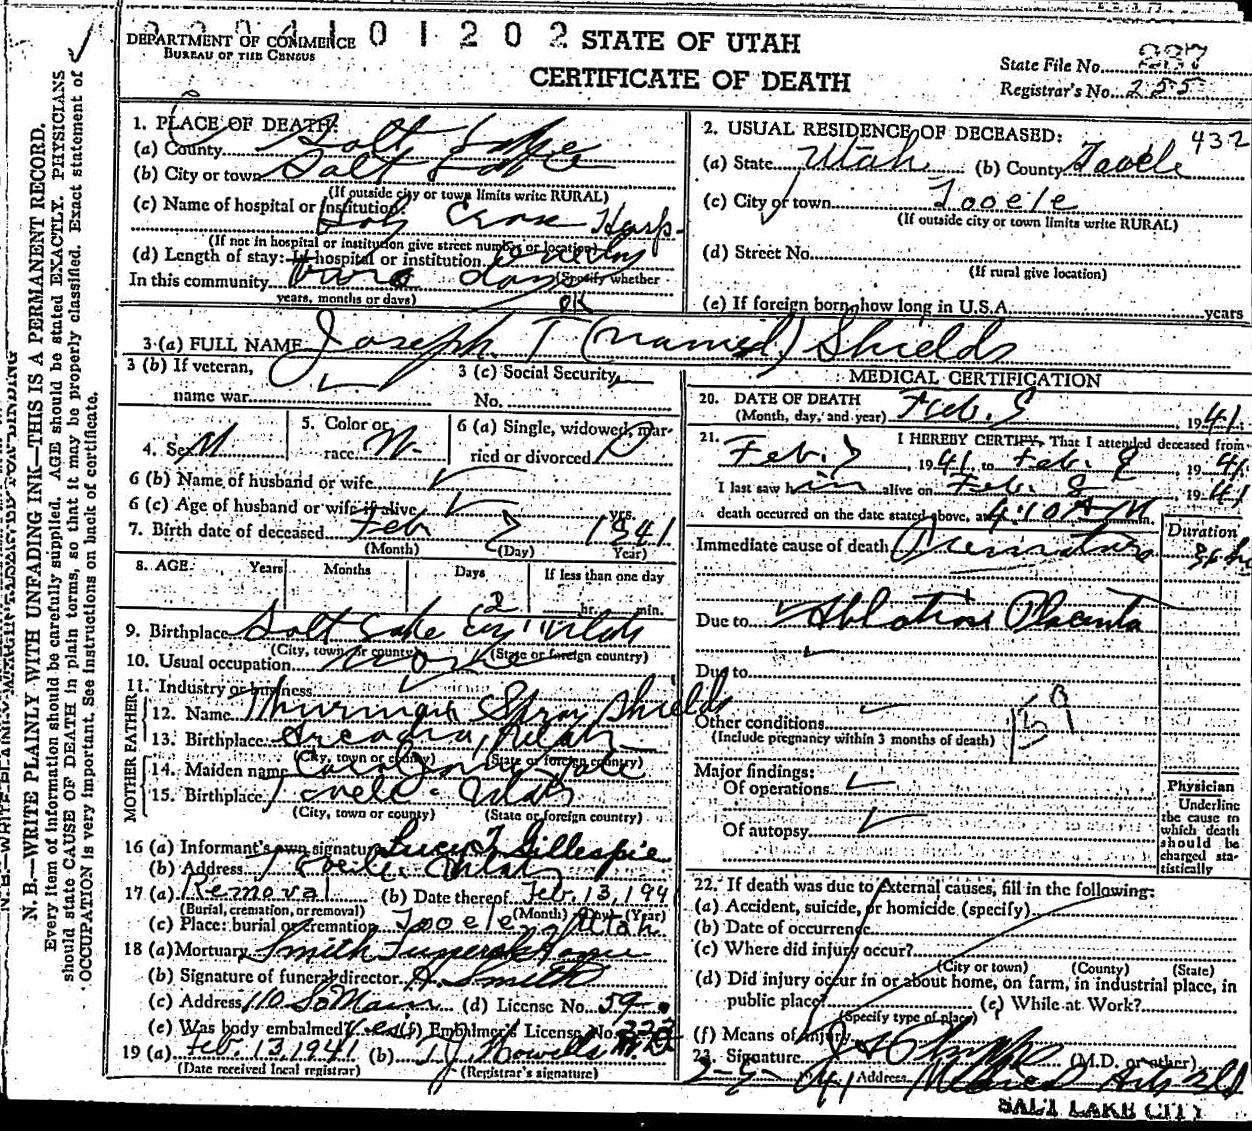 2 2 0 4 1 0 1 2 0 2
DEPARTMENT OF COMMERCE
BUREAU OF THE CENSUS
STATE OF UTAH
CERTIFICATE OF DEATH
State File No. 287
Registrar's No. 255
N. B.—WRITE PLAINLY WITH UNFADING INK—THIS IS A PERMANENT RECORD.
Every item of information should be carefully supplied. AGE should be stated EXACTLY. PHYSICIANS
should state CAUSE OF DEATH in plain terms, so that it may be properly classified. Exact statement of
OCCUPATION is very important. See instructions on back of certificate.
1. PLACE OF DEATH:
(a) County Salt Lake
(b) City or town Salt Lake
(If outside city or town limits write RURAL)
(c) Name of hospital or institution:
Holy Cross Hosp.
(If not in hospital or institution give street number or location)
(d) Length of stay: In hospital or institution
(Specify whether
In this community two days
years, months or days)
2. USUAL RESIDENCE OF DECEASED: 432
(a) State Utah (b) County Tooele
(c) City or town Tooele
(If outside city or town limits write RURAL)
(d) Street No.
(If rural give location)
(e) If foreign born, how long in U.S.A. years
OK
3 (a) FULL NAME Joseph T (named) Shields
3 (b) If veteran,
name war
3 (c) Social Security
No.
4. Sex M
5. Color or
race W.
6 (a) Single, widowed, mar-
ried or divorced
6 (b) Name of husband or wife
6 (c) Age of husband or wife if alive yrs.
7. Birth date of deceased Feb 7 1941
(Month) (Day) (Year)
8. AGE Years Months Days If less than one day
2 hr. min.
9. Birthplace Salt Lake City Utah
(City, town or county) (State or foreign country)
10. Usual occupation none
11. Industry or business
FATHER
12. Name Thurman Spray Shields
13. Birthplace Arcadia, Utah
(City, town or county) (State or foreign country)
MOTHER
14. Maiden name
15. Birthplace Tooele Utah
(City, town or county) (State or foreign country)
16 (a) Informant's own signature Lucy T Gillespie
(b) Address Tooele, Utah
17 (a) Removal (b) Date thereof Feb. 13, 1941
(Burial, cremation, or removal) (Month) (Day) (Year)
(c) Place: burial or cremation Tooele, Utah
18 (a) Mortuary Smith Funeral Home
(b) Signature of funeral director A. Smith
(c) Address 110 So Main (d) License No. 59
(e) Was body embalmed? Yes (f) Embalmer's License No.
19 (a) Feb. 13, 1941 (b) T. J. Howells M D
(Date received local registrar) (Registrar's signature)
MEDICAL CERTIFICATION
20. DATE OF DEATH
(Month, day, and year) Feb. 9, 1941.
21. I HEREBY CERTIFY, That I attended deceased from
Feb. 7, 1941, to Feb. 8, 1941.
I last saw him alive on Feb. 8, 1941
death occurred on the date stated above, at 4:10 A M m.
Duration
Immediate cause of death Premature 36 hr
Due to Ablatio Placenta
Due to
Other conditions
(Include pregnancy within 3 months of death)
Major findings:
Of operations
Of autopsy
Physician
Underline
the cause to
which death
should be
charged sta-
tistically
22. If death was due to external causes, fill in the following:
(a) Accident, suicide, or homicide (specify)
(b) Date of occurrence
(c) Where did injury occur?
(City or town) (County) (State)
(d) Did injury occur in or about home, on farm, in industrial place, in
public place? (e) While at Work?
(Specify type of place)
(f) Means of injury
23. Signature (M.D. or other)
2-9-41 Address Medical Arts Bld
SALT LAKE CITY